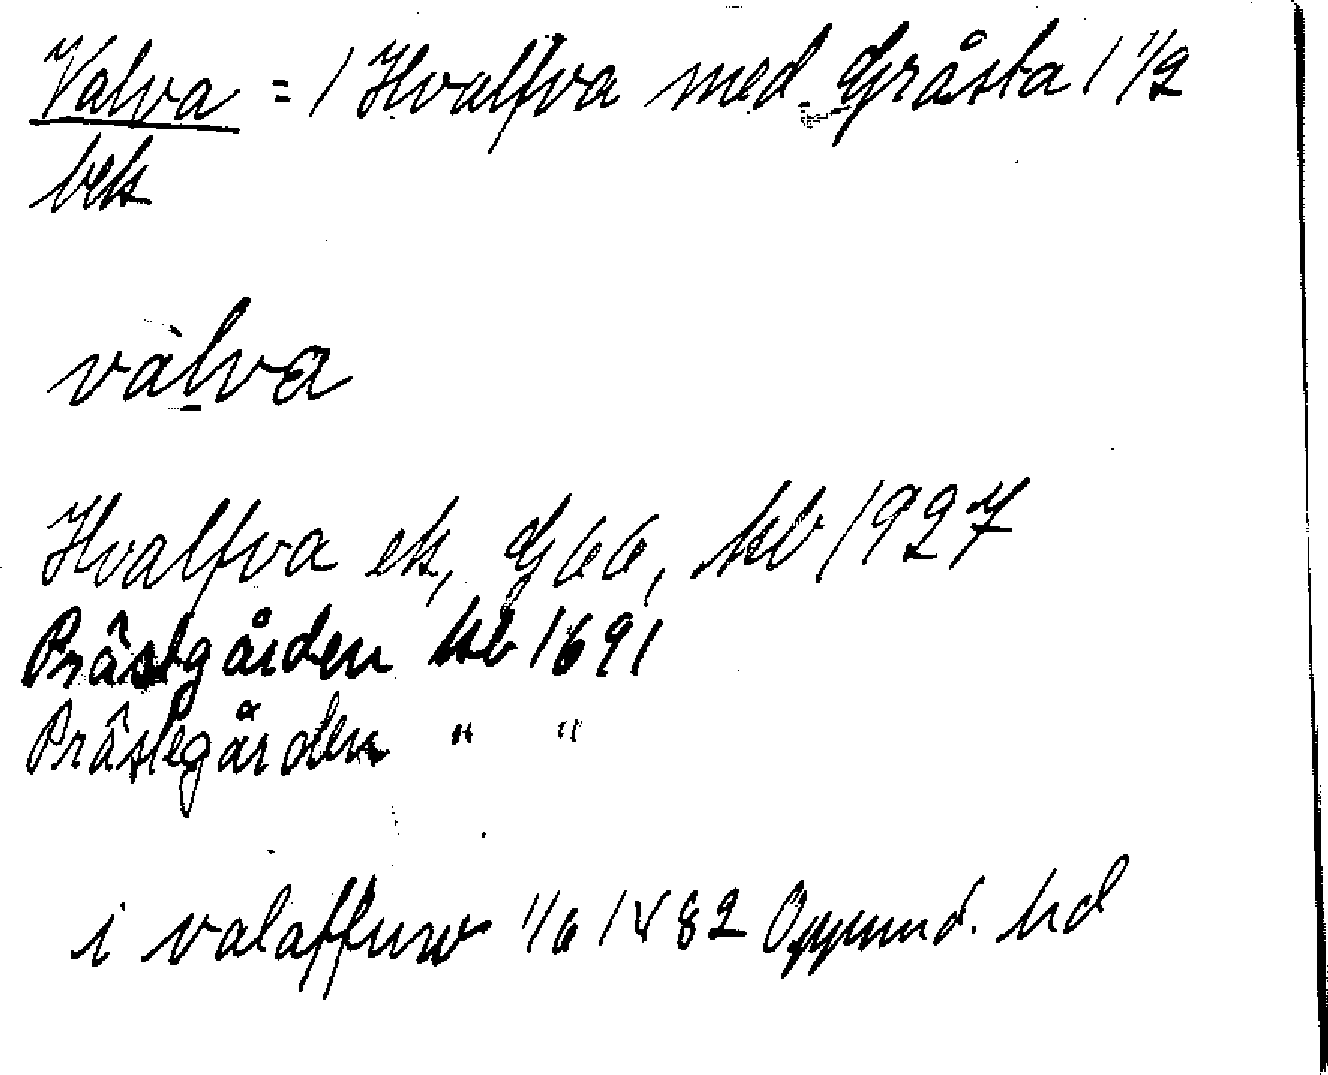 Valva = 1 Hvalfva med Gråsta 1 1/2
bek
vàlva
Hvalfva ek, G66, kb 1927
Prästgården kb 1691
Prästegården " "
i valaffuw 1/6 1482 Oppund. hd